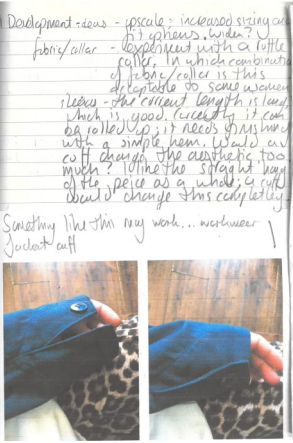 Development ideas - upscale = increased sizing and
fit options. wider?
fabric/collar - experiment with a ruffle
collar. In which combination
of fabric/collar is this
acceptable to some women
sleeves - the current length is long,
which is good. Currently it can
be rolled up, it needs finishing
with a simple hem. Would a
cuff change the aesthetic too
much? I like the straight hang
of the peice as a whole, a cuff
would change this completley.
Something like this may work... workwear
Jacket cuff